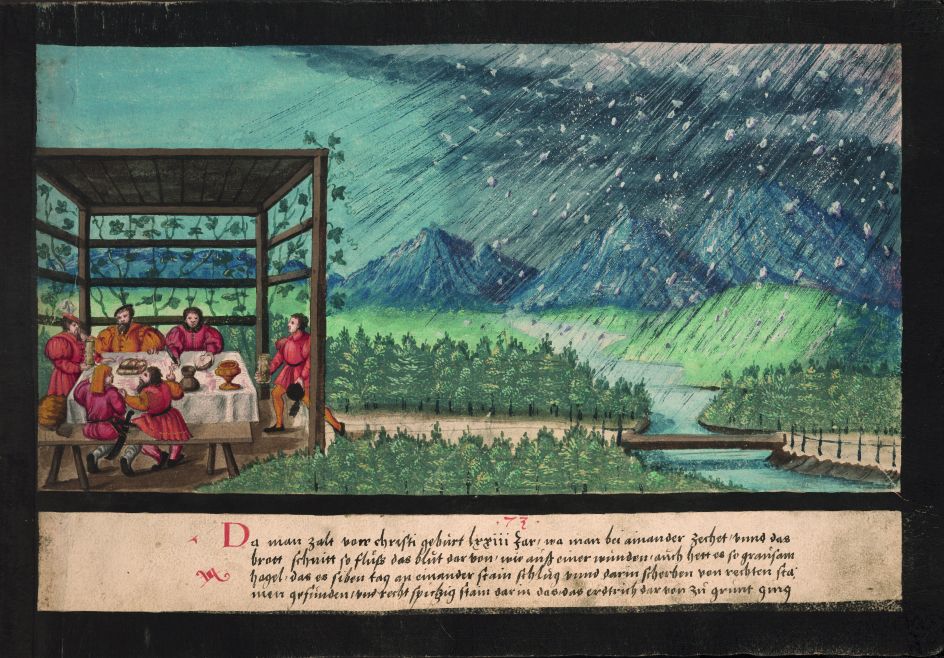 · 73 ·
Da man zalt vorr christi gebürt lxxiii Jar, wa man bei ainander zechet, vnnd das
brott schnitt so flüß das blüt dar von, wie auß einer wunden, auch hett es so graüsam
hagel, das es siben tag an einander stain schlüg vnnd darin scherben von rechten stai
nen gefünden, vnd recht spitzig stain dar in das, das erdtrich dar von zü grünt ging